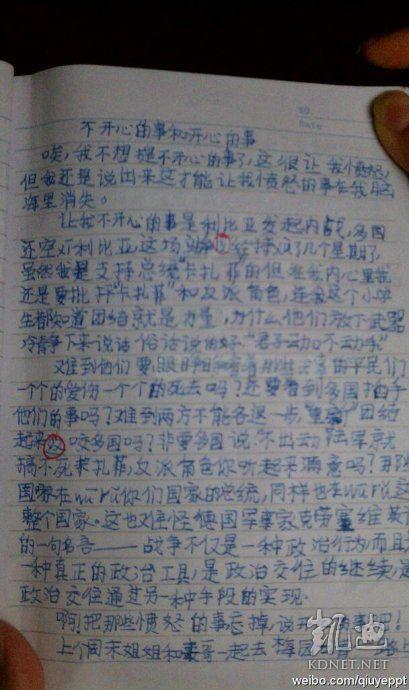 NO.
Date
不开心的事和开心的事
唉,我不想提不开心的事了,这很让我愤怒,
但我还是说出来这才能让我愤怒的事在我脑
海里消失。
让我不开心的事是利比亚发起内战,多国
还空对利比亚这场 已经持续了几个星期了
虽然我是支持总统"卡扎菲"的但在我内心里我
还是要批评"卡扎菲"和反派角色,连我这个小学
生都知道团结就是力量,为什么他们放下武器
冷静下来说话俗话说的好"君子动口不动手"
难到他们要眼睁睁看着 的平民们
一个个的受伤一个个的死去吗?还要看到多国拍手
他们的事吗?难到两方不能各退一步, 团结
起来 咬多国吗?非要多国说:不出动陆军就
搞不死卡扎菲,反派角色你听起来满意吗?那些
国家在wūrǔ你们国家的总统,同样也在wūrǔ这
整个国家。这也难怪德国军事家克劳塞维茨
的一句名言——战争不仅是一种政治行为而且
一种真正的政治工具,是政治交往的继续,是
政治交往通过另一种手段的实现。
啊!把那些愤怒的事忘掉,说开心的事吧!
上个周末姐姐和 哥一起去梅园
凯迪
KDNET.NET
weibo.com/qiuyeppt